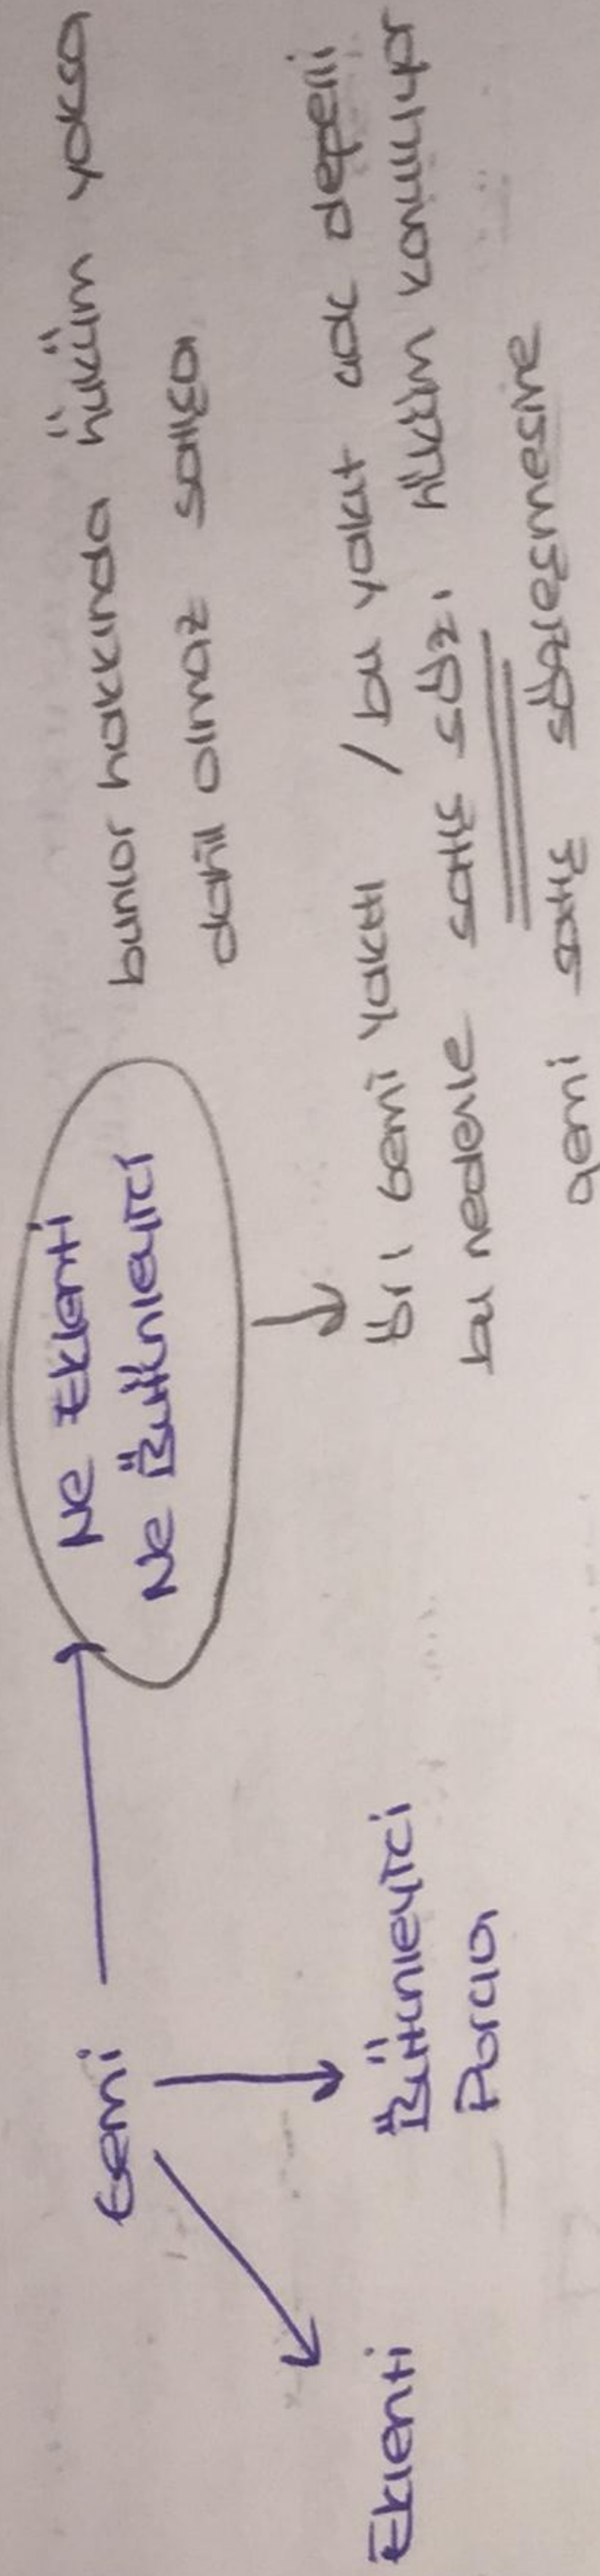 Gemi
Ne Eklenti
Ne Bütünleyici
bunlar hakkında hüküm yoksa
dahil olmaz satışa
Eklenti
Bütünleyici
Parça
ör/ gemi yakıtı / bu yakıt da dahildir
bu nedenle satış söz.
gemi satış sözleşmesine